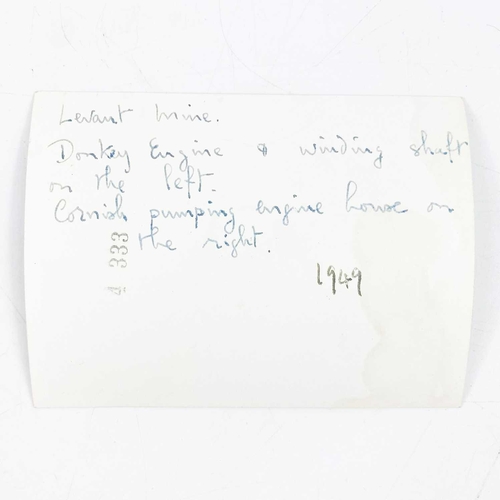 Levant Mine.
Donkey Engine & winding shaft
on the left.
Cornish pumping engine house on
the right.
333
1949